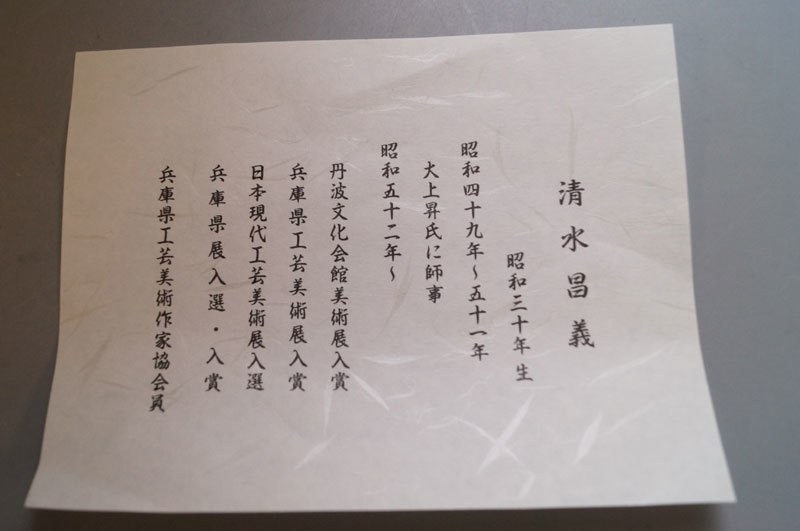 清水昌義
昭和三十年生
昭和四十九年～五十一年
大上昇氏に師事
昭和五十二年～
丹波文化会館美術展入賞
兵庫県工芸美術展入賞
日本現代工芸美術展入選
兵庫県展入選・入賞
兵庫県工芸美術作家協会員